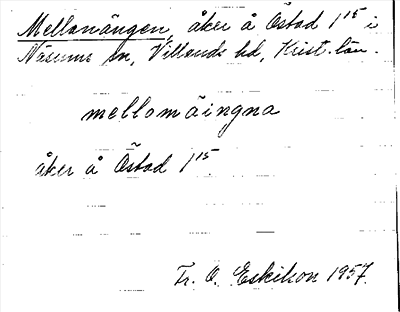 Mellanängen, åker å Östad 1¹⁵ i
Näsums sn, Villands hd, Krist. län.
mellomäingna
åker å Östad 1¹⁵.
Fr. O. Eskilson 1957.